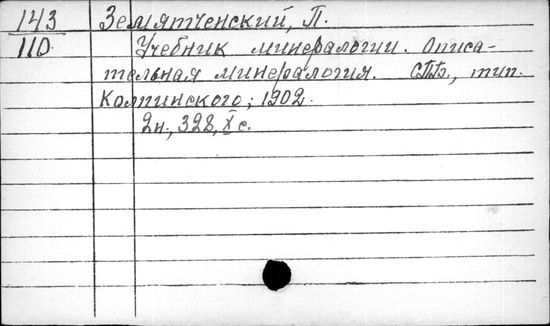 143 Земятченский, П.
110 Учебник минералогии. Описа-
тельная минералогия. СПБ., тип.
Колпинского, 1902.
2н., 328, X с.